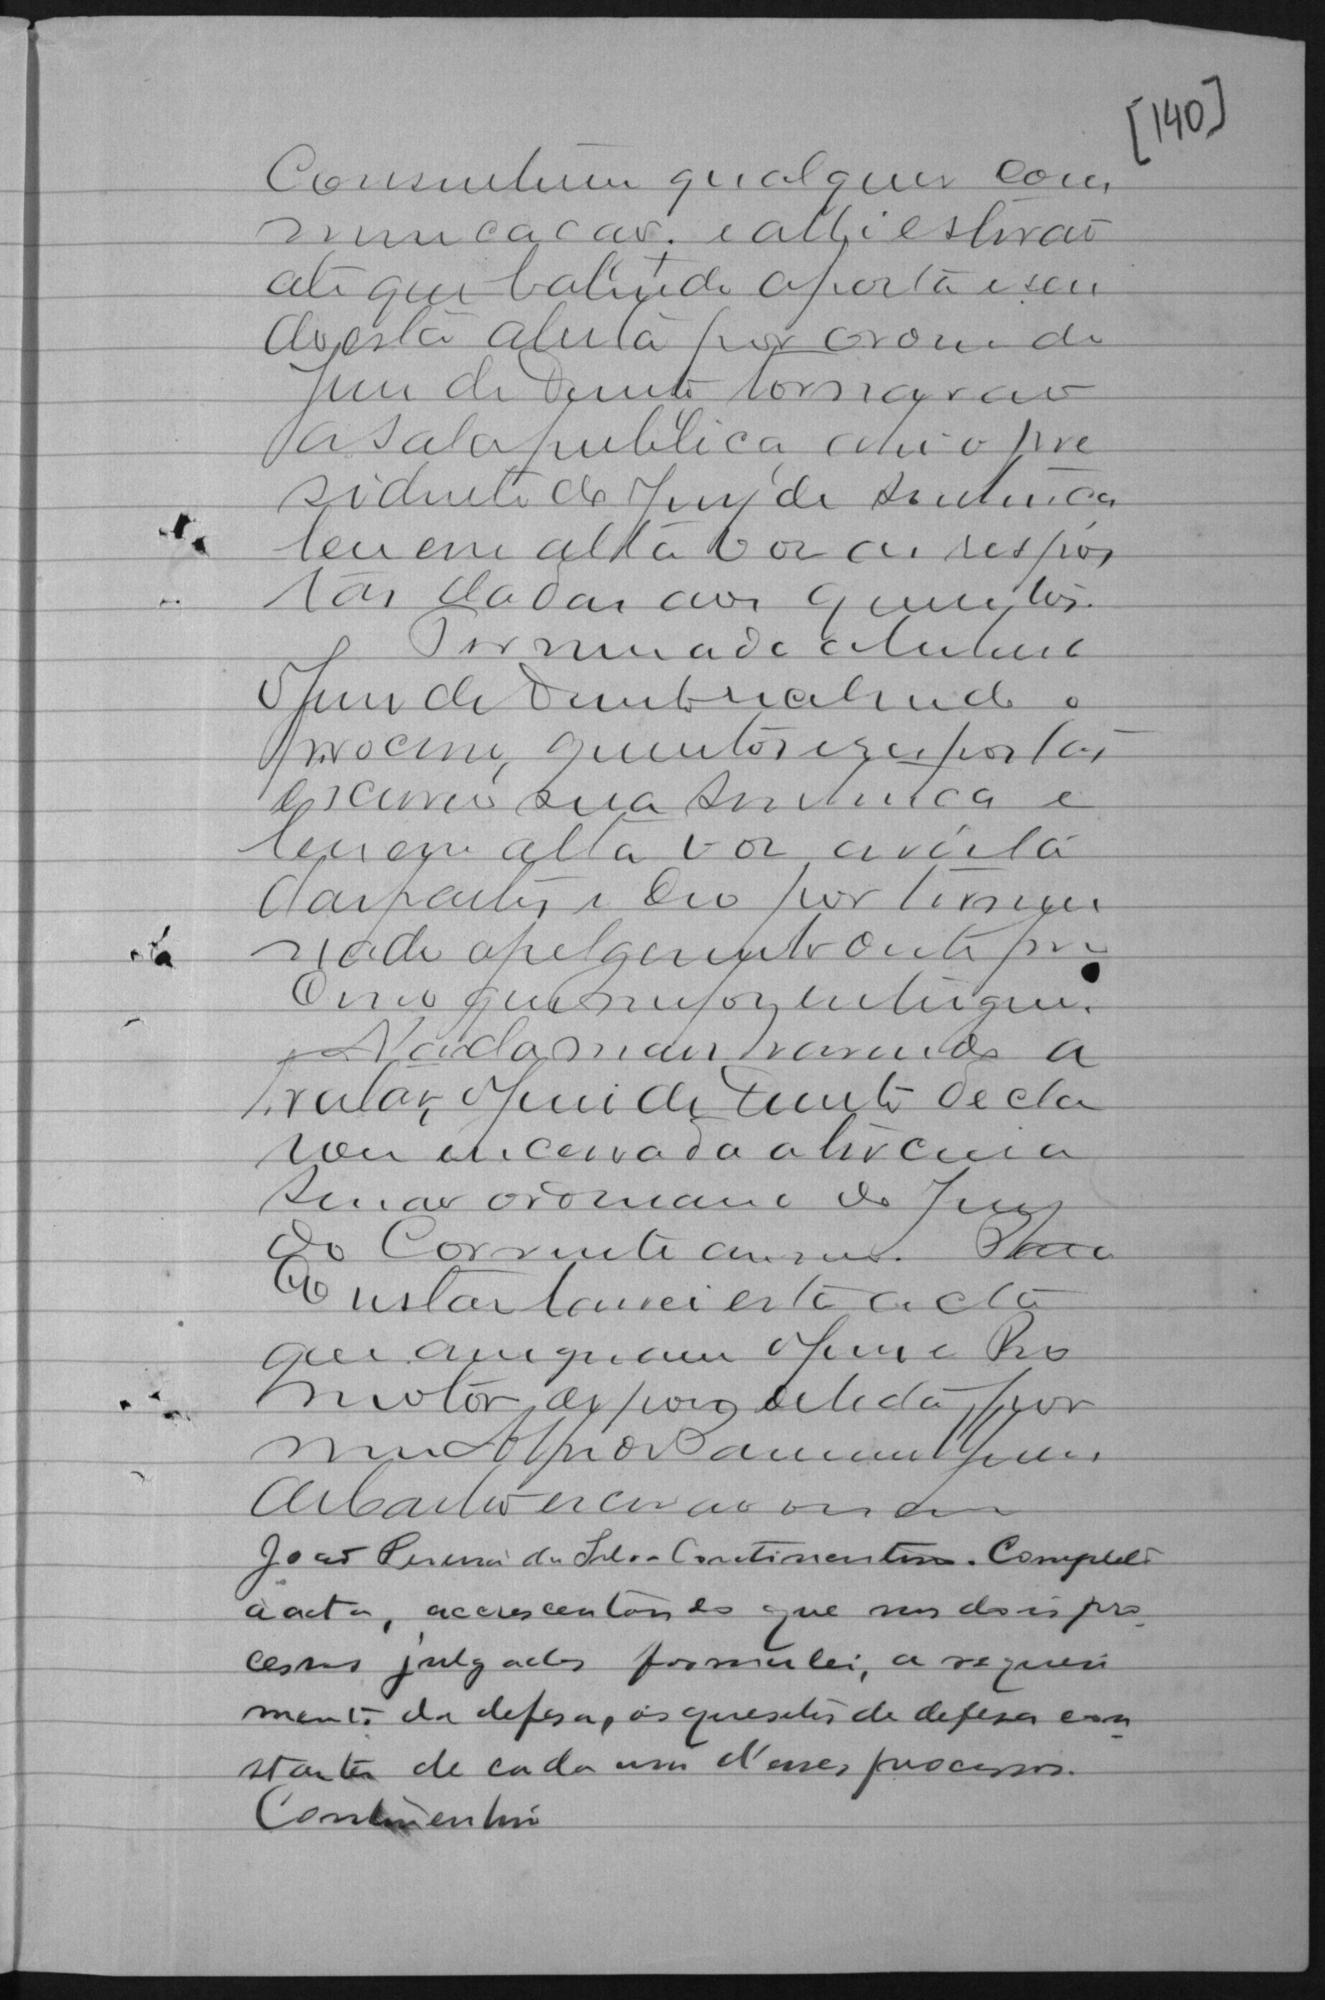 [140]
Consentirem qualquer com
municacao, e alli estiverão
até que batendo a porta e sen
do está aberta por ordem do
Juiz de Direito tornarão
a Sala publica, ahi o pre
sidente do Jury de Sentença
leu em alta voz as respos
tas dadas aos quesitos.
Terminada a leitura
o Juiz de Direito recebendo o
processo, quesitos e respostas
escreveo sua Sentença e
leu em alta voz a vista
das partes e deo por termi
nado o julgamento deste pro
Nada mais havendo a
tratar, o Juiz de Direito decla
rou encerrada a terceira
sessão ordinaria do Jury
do Corrente anno. Para
Constar lavrei esta acta
que assignam o Juiz e Pro
motor, depois de lida por
mim
de Castro escrivão
João Pereira da Silva Continentino. Completo
a acta, accrescentando que nos dois pro-
cessos julgados formulei, a requeri
mento da defesa, os quesitos de defesa con-
stantes de cada um d'esses processos.
Continentino